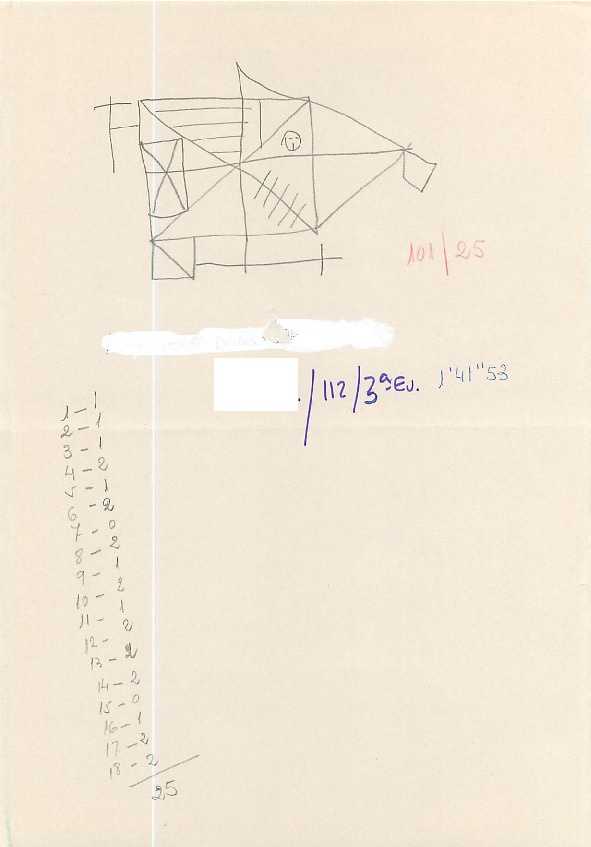 101/25
./112/3ªEv. 1'41"53
1 - 1
2 - 1
3 - 1
4 - 2
5 - 1
6 - 2
7 - 0
8 - 2
9 - 1
10 - 2
11 - 1
12 - 2
13 - 2
14 - 2
15 - 0
16 - 1
17 - 2
18 - 2
25